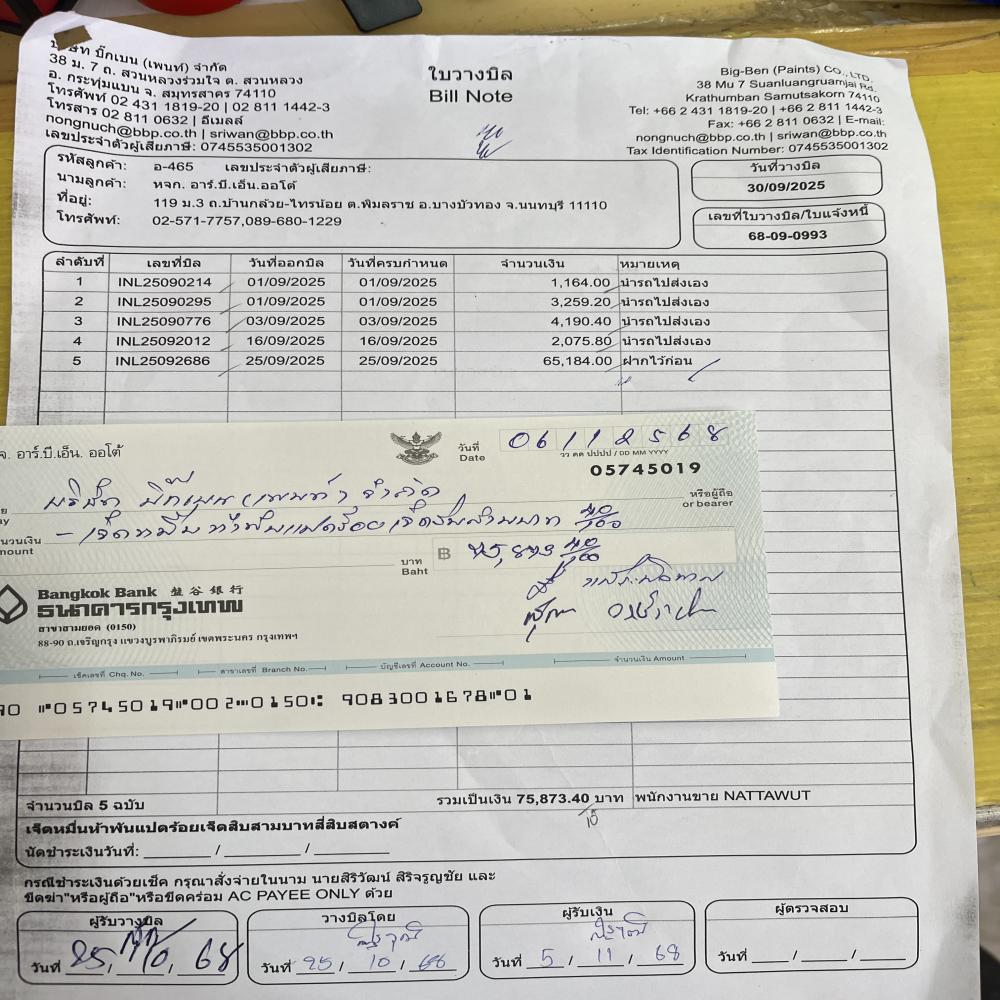 บริษัท บิ๊กเบน (เพนท์) จำกัด
38 ม. 7 ถ. สวนหลวงร่วมใจ ต. สวนหลวง
อ. กระทุ่มแบน จ. สมุทรสาคร 74110
โทรศัพท์ 02 431 1819-20 | 02 811 1442-3
โทรสาร 02 811 0632 | อีเมลล์
nongnuch@bbp.co.th | sriwan@bbp.co.th
เลขประจำตัวผู้เสียภาษี: 0745535001302
ใบวางบิล
Bill Note
Big-Ben (Paints) Co., LTD.
38 Mu 7 Suanluangruamjai Rd.
Krathumban Samutsakorn 74110
Tel: +66 2 431 1819-20 | +66 2 811 1442-3
Fax: +66 2 811 0632 | E-mail:
nongnuch@bbp.co.th | sriwan@bbp.co.th
Tax Identification Number: 0745535001302
รหัสลูกค้า: อ-465 เลขประจำตัวผู้เสียภาษี:
นามลูกค้า: หจก. อาร์.บี.เอ็น.ออโต้
ที่อยู่: 119 ม.3 ถ.บ้านกล้วย-ไทรน้อย ต.พิมลราช อ.บางบัวทอง จ.นนทบุรี 11110
โทรศัพท์: 02-571-7757,089-680-1229
วันที่วางบิล
30/09/2025
เลขที่ใบวางบิล/ใบแจ้งหนี้
68-09-0993
ลำดับที่ เลขที่บิล วันที่ออกบิล วันที่ครบกำหนด จำนวนเงิน หมายเหตุ
1 INL25090214 01/09/2025 01/09/2025 1,164.00 นำรถไปส่งเอง
2 INL25090295 01/09/2025 01/09/2025 3,259.20 นำรถไปส่งเอง
3 INL25090776 03/09/2025 03/09/2025 4,190.40 นำรถไปส่งเอง
4 INL25092012 16/09/2025 16/09/2025 2,075.80 นำรถไปส่งเอง
5 INL25092686 25/09/2025 25/09/2025 65,184.00 ฝากไว้ก่อน
จ. อาร์.บี.เอ็น. ออโต้
วันที่ 06112568
Date วว ดด ปปปป / DD MM YYYY
05745019
บริษัท บิ๊กเบน (เพนท์) จำกัด
หรือผู้ถือ
or bearer
เจ็ดหมื่นห้าพันแปดร้อยเจ็ดสิบสามบาท 40/100
บาท
Baht
฿ 75,873 40/100
Bangkok Bank 盤谷銀行
ธนาคารกรุงเทพ
สาขาสามยอด (0150)
88-90 ถ.เจริญกรุง แขวงบูรพาภิรมย์ เขตพระนคร กรุงเทพฯ
เช็คเลขที่ Chq. No. สาขาเลขที่ Branch No. บัญชีเลขที่ Account No. จำนวนเงิน Amount
⑈05745019⑈002⑉0150⑆ 9083001678⑈01
จำนวนบิล 5 ฉบับ รวมเป็นเงิน 75,873.40 บาท พนักงานขาย NATTAWUT
เจ็ดหมื่นห้าพันแปดร้อยเจ็ดสิบสามบาทสี่สิบสตางค์
นัดชำระเงินวันที่: ____ / ____ / ____
กรณีชำระเงินด้วยเช็ค กรุณาสั่งจ่ายในนาม นายสิริวัฒน์ สิริจรูญชัย และ
ขีดฆ่า"หรือผู้ถือ"หรือขีดคร่อม AC PAYEE ONLY ด้วย
ผู้รับวางบิล วางบิลโดย ผู้รับเงิน ผู้ตรวจสอบ
วันที่ 25, 10, 68 วันที่ 25 / 10 / 68 วันที่ 5 / 11 / 68 วันที่ ___ / ___ / ___